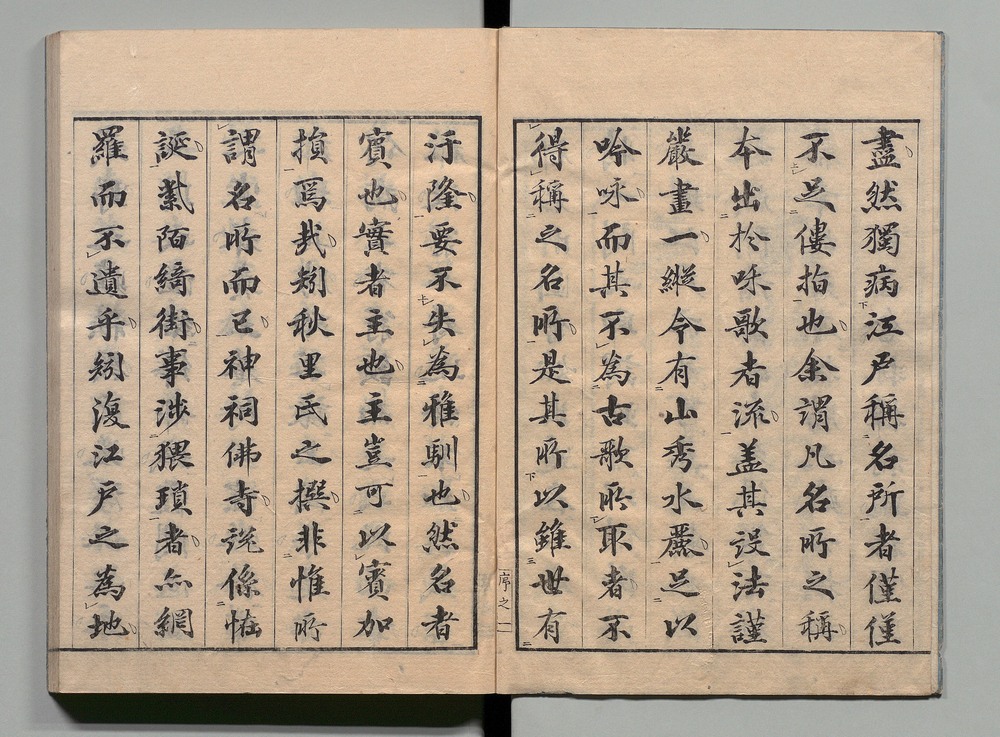 盡然獨病江戸稱名所者僅僅
不足僂指也余謂凡名所之稱
本出於咏歌者流盖其設法謹
嚴畫一縱令有山秀水麗足以
吟咏而其不為古歌所取者不
得稱之名所是其所以雖世有
序之一
汙隆要不失為雅馴也然名者
賓也實者主也主豈可以賓加
損焉哉矧秋里氏之撰非惟所
謂名所而已神祠佛寺説係恠
誕紫陌綺街事渉猥瑣者亦網
羅而不遺乎矧復江戸之為地